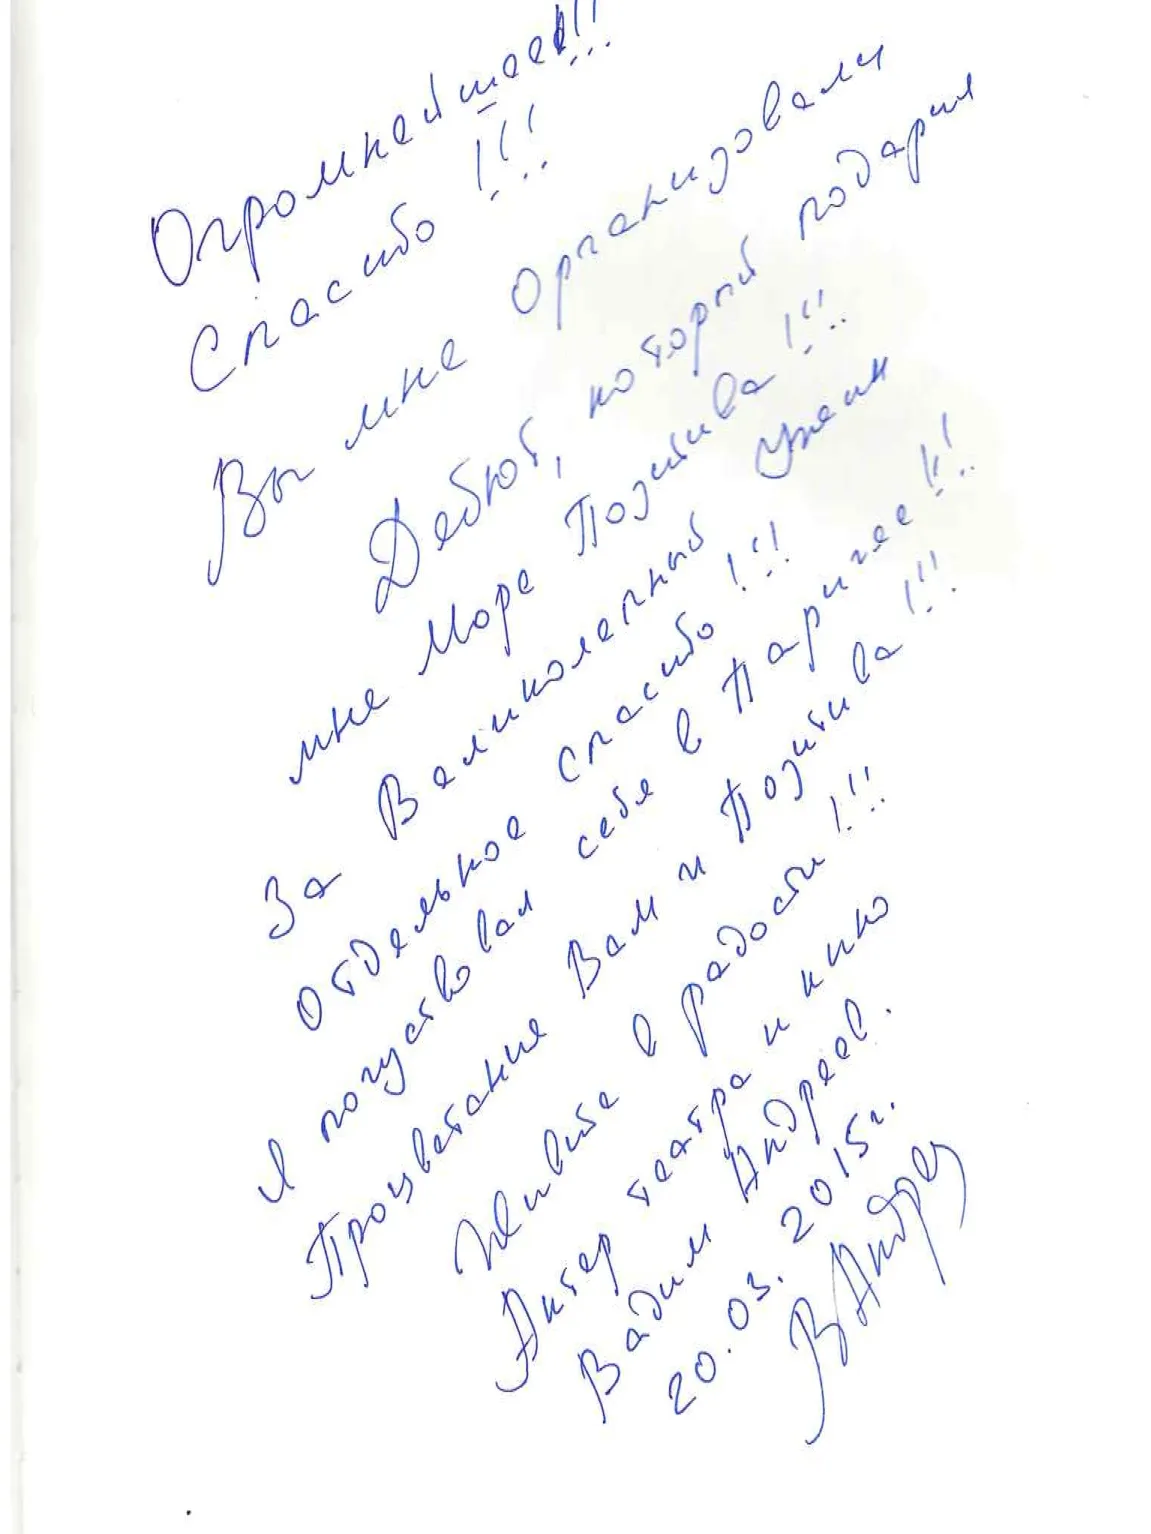 Огромнейшее!!!
Спасибо!!!
Вы мне организовали
Дебют, который подарил
мне Море Позитива!!!
За Великолепный Ужин
отдельное спасибо!!!
Я почуствовал себя в Париже!!!
Процветания Вам и Позитива!!!
Живите в радости!!!
Актер театра и кино
Вадим Андреев.
20.03.2015г.